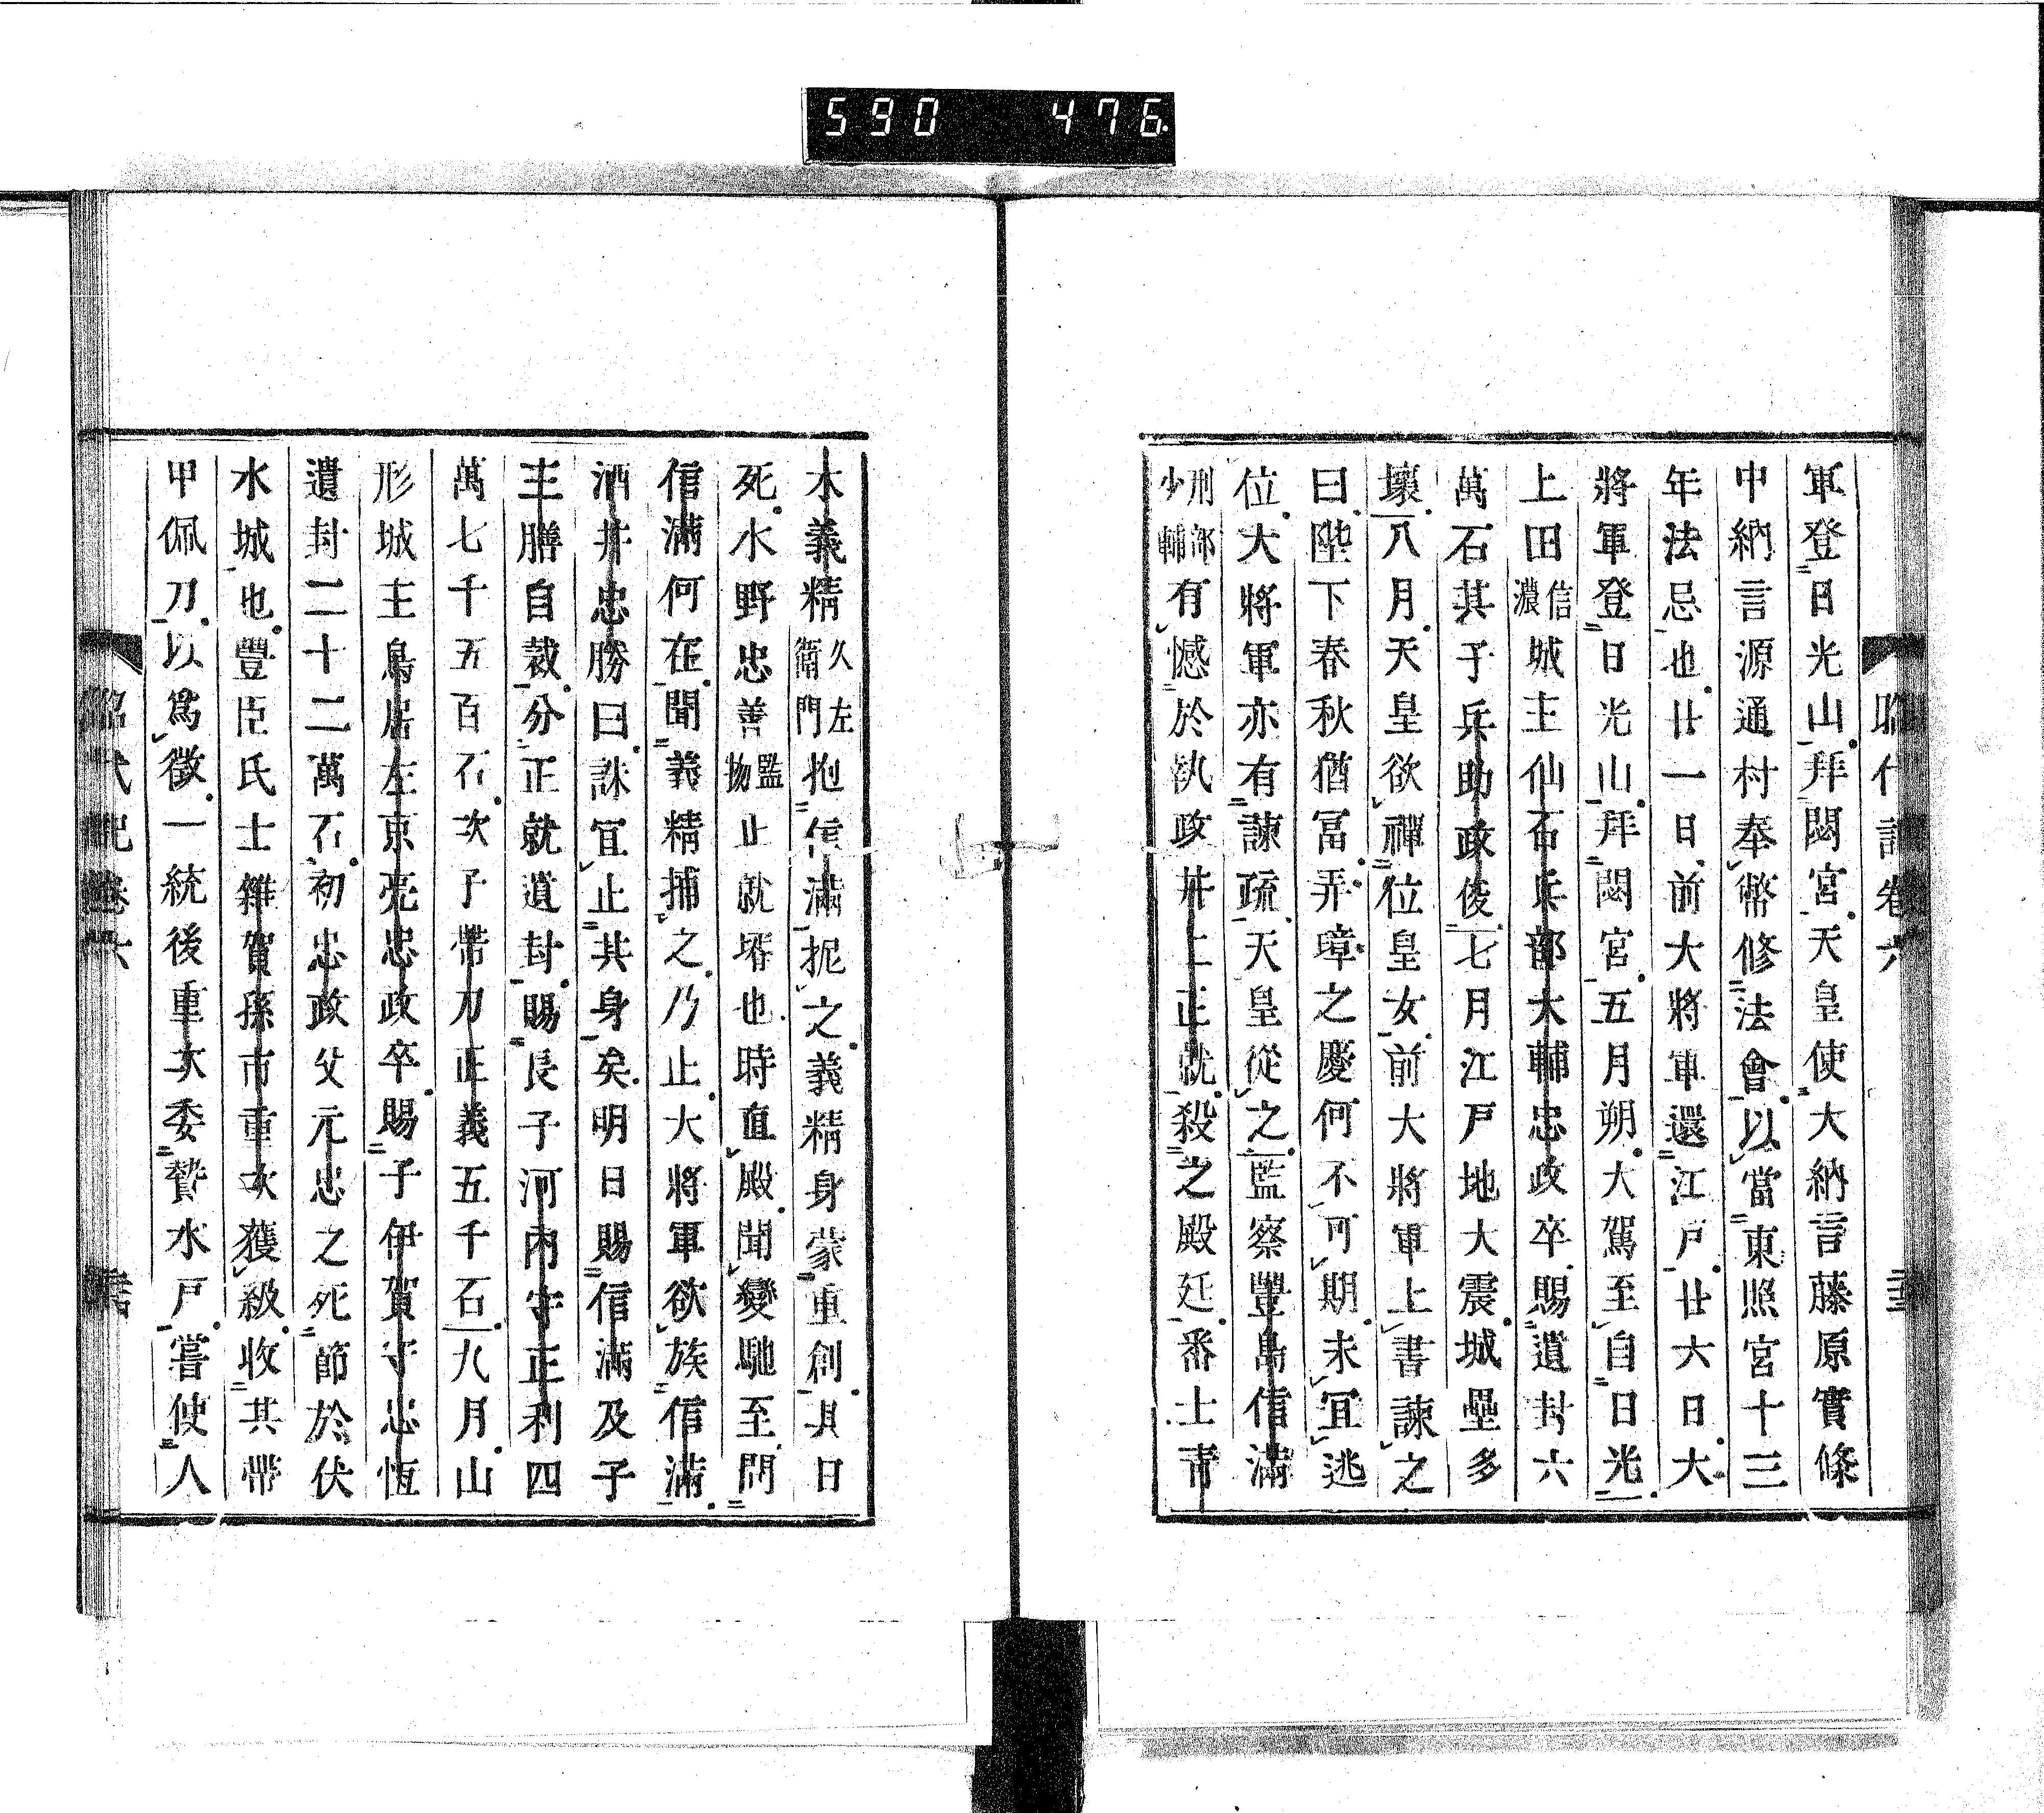 590 476
軍登日光山拜閟宮天皇使大納言藤原實條
中納言源通村奉幣修法會以當東照宮十三
年法忌也廿一日前大將軍還江戸廿六日大
將軍登日光山拜閟宮五月朔大駕至自日光
上田信濃城主仙石兵部大輔忠政卒賜遺封六
萬石其子兵助政俊七月江戸地大震城壘多
壞八月天皇欲禪位皇女前大將軍上書諫之
曰陛下春秋猶冨弄璋之慶何不可期未冝逃
位大將軍亦有諫疏天皇從之監察豐島信滿
刑部少輔有憾於執政井上正就殺之殿廷番士青
木義精久左衞門抱信滿扼之義精身蒙重創其日
死水野忠善監物止就壻也時直殿聞變馳至問
信滿何在聞義精捕之乃止大將軍欲族信滿
酒井忠勝曰誅冝止其身矣明日賜信滿及子
主膳自裁分正就遺封賜長子河内守正利四
萬七千五百石次子帶刀正義五千石九月山
形城主鳥居左京亮忠政卒賜子伊賀守忠恆
遺封二十二萬石初忠政父元忠之死節於伏
水城也豐臣氏士雜賀孫市重次獲級收其帶
甲佩刀以爲徵一統後重次委贄水戸嘗使人